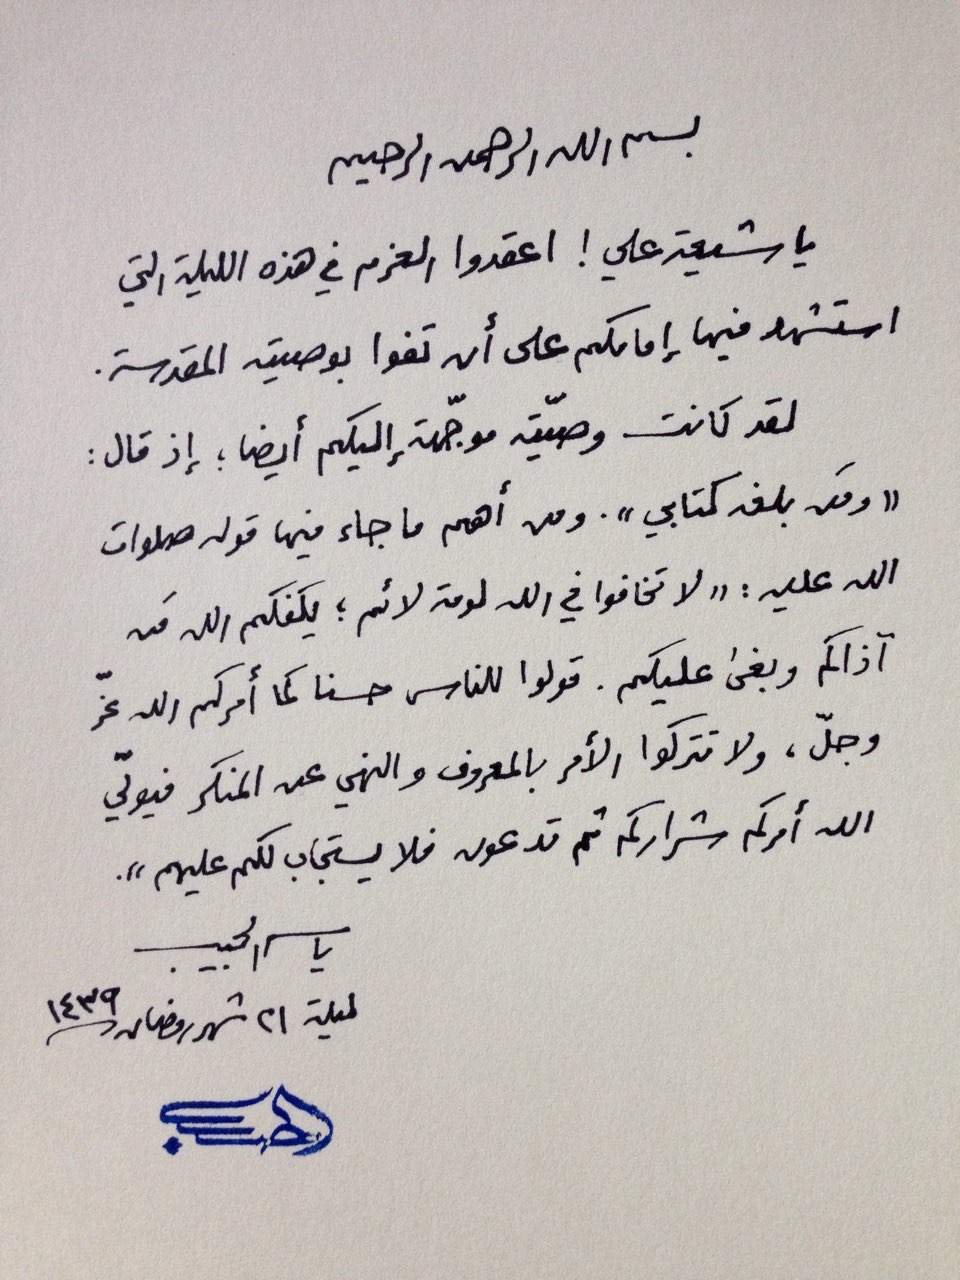 بسم الله الرحمن الرحيم
يا شيعة علي ! اعقدوا العزم في هذه الليلة التي
استشهد فيها إمامكم على أن تفوا بوصيته المقدسة .
لقد كانت وصيّته موجّهة إليكم أيضا ؛ إذ قال :
«ومَن بلغه كتابي» . ومن أهم ما جاء فيها قوله صلوات
الله عليه : «لا تخافوا في الله لومة لائم ؛ يكفكم الله مَن
آذاكم وبغىٰ عليكم . قولوا للناس حسنا كما أمركم الله عزّ
وجلّ ، ولا تتركوا الأمر بالمعروف والنهي عن المنكر فيولّي
الله أمركم شراركم ثم تدعون فلا يستجاب لكم عليهم» .
ياسر الحبيب
ليلة ٢١ شهر رمضان ١٤٣٩
الحبيب